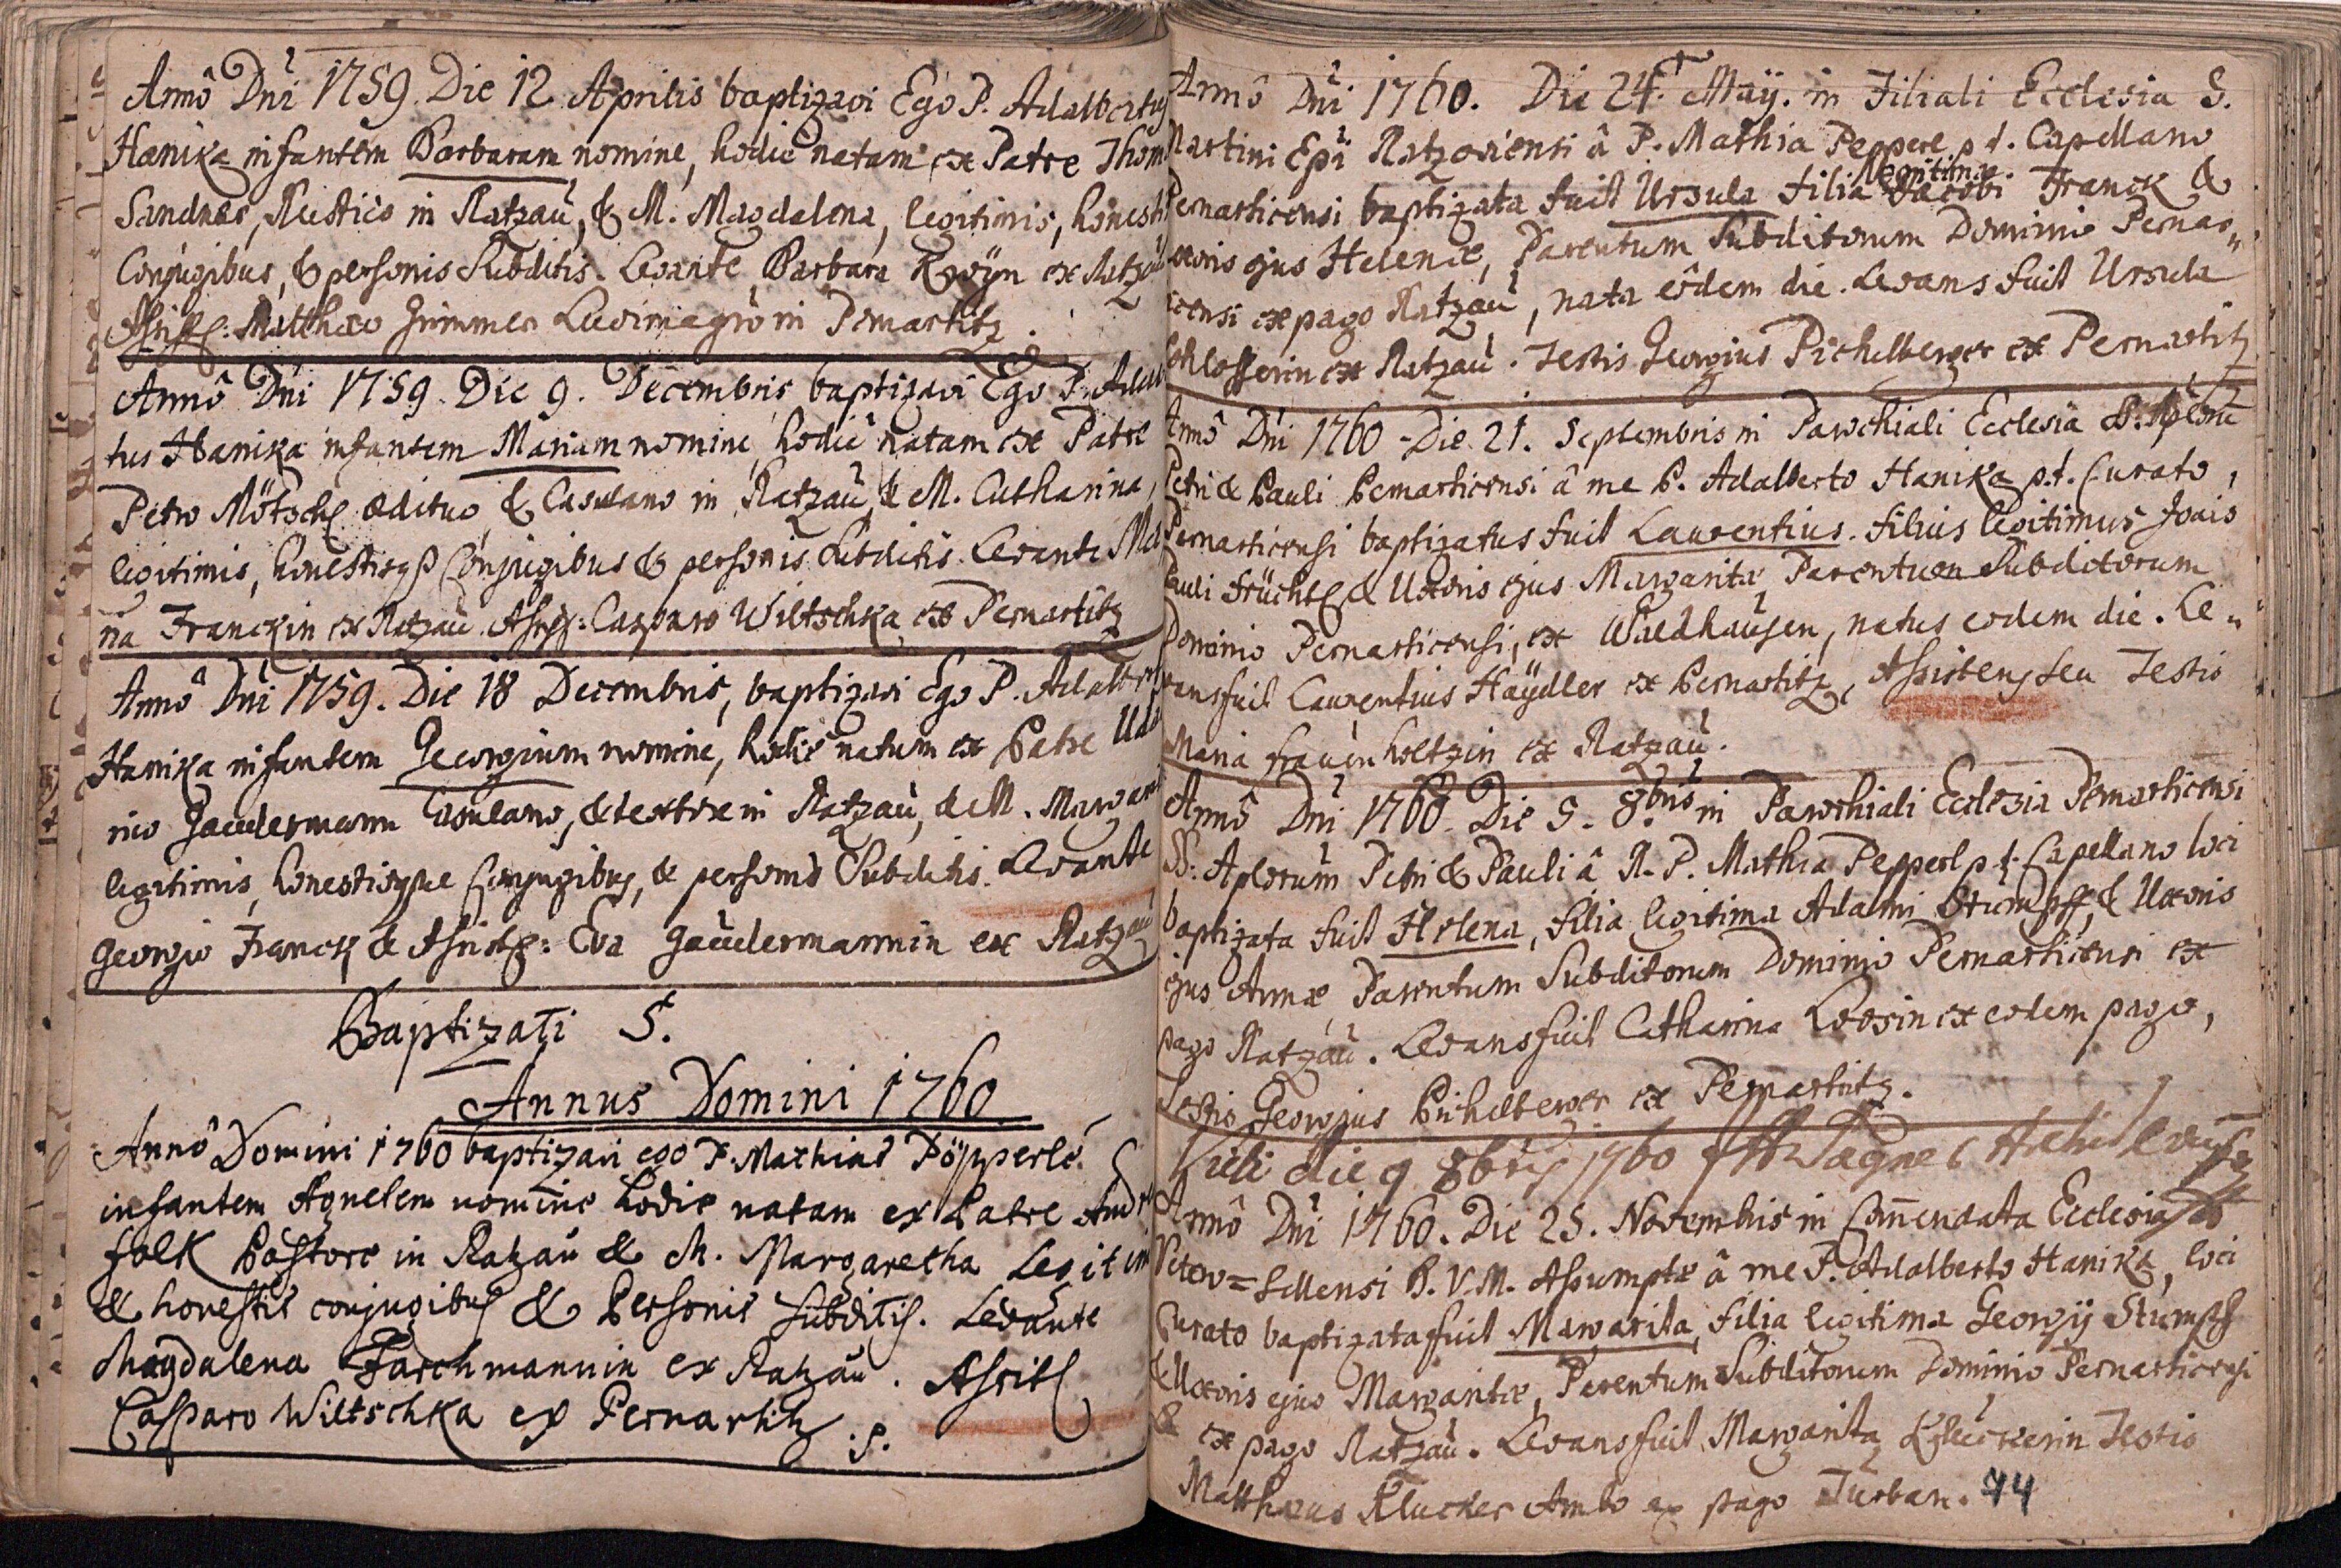 Annô Dni 1759. Die 12 Aprilis baptizavi Ego P. Adalbertus
Hanika infantem Barbaram nomine, hodie natam ex Patre Thom
Sandner, Rustico in Ratzau, & M. Magdalena, legitimis, honesti
Conjugibus, & personis Subditis. Levante Barbara ex Ratzau
Matthæo in Pernartitz.
Annô Dni 1759. Die 9. Decembris baptizavi Ego P. Adal
tus Hanika infantem Mariam nomine, hodie natam ex Patre
Petro Mötsch ædituo & Casulano in Ratzau, & M. Catharina,
legitimis, honestisqȝ Conjugibus & personis Subditis. Levante Ma
na Franckin ex Ratzau. Casparo Wiltschka ex Pernartitz
Annô Dni 1759. Die 18 Decembris, baptizavi Ego P. Adalbert
Hanika infantem Georgium nomine, hodie natum ex Patre
rico Gaudermann Casulano, & textore in Ratzau, & M. Margar
legitimis, honestisque Conjugibus, & personis Subditis. Levante
Georgio Franck & Eva Gaudermannin ex Ratzau
Baptizati 5.
Annus Domini 1760
Annô Domini 1760 baptizavi ego P. Mathias Pöpperl
infantem Agnetem nomine hodie natam ex Patre And
folk Pastore in Ratzau & M. Margaretha Legitim
& honestis conjugibus & Personis Subditis. Levante
Magdalena Farchmannin ex Ratzau.
Casparo Wiltschka ex Pernartitz
Annô Dni 1760. Die 24. Maÿ. in Filiali Ecclesia S.
Martini Epi Ratzoviensi â P. Mathia Pepperl p.t. Capellano
legitima
Pernarticensi baptizata fuit Ursula filia Jacobi Franck &
Uxoris ejus Helenæ, Parentum Subditorum Dominio Pernar„
ticensi ex pago Ratzau, nata eôdem die. Levans fuit Ursula
Schlosserin ex Ratzau. Testis Georgius Pichelberger ex Pernartitz
Annô Dni 1760. Die 21. Septembris in Parochiali Ecclesia
Petri & Pauli Pernarticensi â me P. Adalberto Hanika p.t. Curato,
Pernarticensi baptizatus fuit Laurentius. filius legitimus Joais
Pauli & Uxoris ejus Margaritæ, Parentum Subditorum
Dominio Pernarticensi, ex Waldhausen, natus eodem die. Le„
vans fuit Laurentius Haÿdler ex Pernartitz, Assistens seu Testis
Maria frauenholtzin ex Ratzau.
Annô Dni 1760. Die 5. 8bris in Parochiali Ecclesia Pernarticensi
SS: Aplorum Petri & Pauli â R. P. Mathia Pepperl p.t. Capellano loci
baptizata fuit Helena, filia legitima Adami Stumpff, & Uxoris
ejus Annæ, Parentum Subditorum Dominio Pernarticensi ex
pago Ratzau. Levans fuit Catharina ex eodem pago,
Testis Georgius Pichelberger ex Pernartitz.
die 9 8bris 1760
Annô Dni 1760. Die 25. Novembris in Comendata Ecclesia
B. V. M. Assumptæ â me P. Adalberto Hanika, loci
Curato baptizata fuit Margarita, filia legitima Georgij Stumpff
& Uxoris ejus Margaritæ, Parentum Subditorum Dominio Pernarticensi
& ex pago Ratzau. Levans fuit Margarita Testis
Matthæus Klucker Ambo ex pago Turban. 44